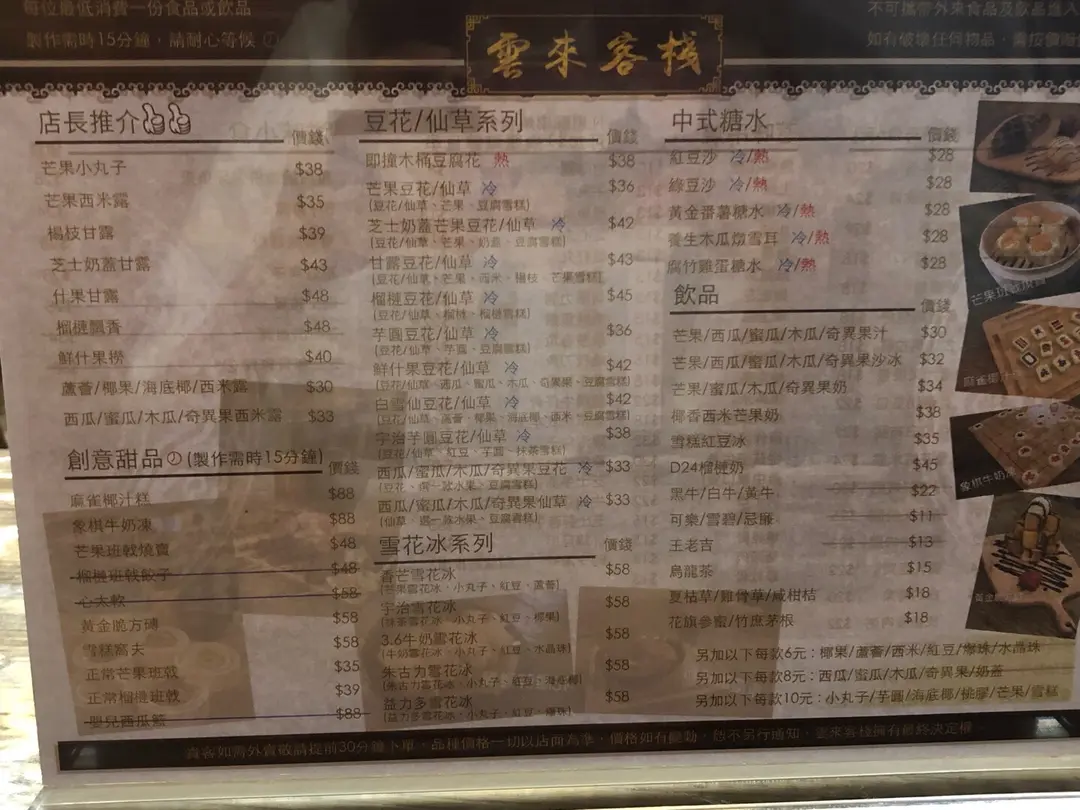 每位最低消費一份食品或飲品
製作需時15分鐘，請耐心等候
不可攜帶外來食品及飲品進入
如有破壞任何物品，需按價賠
雲來客栈
店長推介
價錢
芒果小丸子 $38
芒果西米露 $35
楊枝甘露 $39
芝士奶蓋甘露 $43
什果甘露 $48
榴槤飄香 $48
鮮什果撈 $40
蘆薈/椰果/海底椰/西米露 $30
西瓜/蜜瓜/木瓜/奇異果西米露 $33
創意甜品(製作需時15分鐘) 價錢
麻雀椰汁糕 $88
象棋牛奶凍 $88
芒果班戟燒賣 $48
榴槤班戟餃子 $48
心太軟 $58
黃金脆方磚 $58
雪糕窩夫 $58
正常芒果班戟 $35
正常榴槤班戟 $39
嬰兒西瓜 $88
豆花/仙草系列 價錢
即撞木桶豆腐花 熱 $38
芒果豆花/仙草 冷 $36
(豆花/仙草、芒果、豆腐雪糕)
芝士奶蓋芒果豆花/仙草 冷 $42
(豆花/仙草、芒果、奶蓋、豆腐雪糕)
甘露豆花/仙草 冷 $43
(豆花/仙草、芒果、西米、楊枝、芒果雪糕)
榴槤豆花/仙草 冷 $45
(豆花/仙草、榴槤、榴槤雪糕)
芋圓豆花/仙草 冷 $36
(豆花/仙草、芋圓、豆腐雪糕)
鮮什果豆花/仙草 冷 $42
(豆花/仙草、西瓜、蜜瓜、木瓜、奇異果、豆腐雪糕)
白雪仙豆花/仙草 冷 $42
(豆花/仙草、蘆薈、椰果、海底椰、西米、豆腐雪糕)
宇治芋圓豆花/仙草 冷 $38
(豆花/仙草、紅豆、芋圓、抹茶雪糕)
西瓜/蜜瓜/木瓜/奇異果豆花 冷 $33
(豆花、選一款水果、豆腐雪糕)
西瓜/蜜瓜/木瓜/奇異果仙草 冷 $33
(仙草、選一款水果、豆腐雪糕)
雪花冰系列 價錢
香芒雪花冰 $58
(芒果雪花冰、小丸子、紅豆、蘆薈)
宇治雪花冰 $58
(抹茶雪花冰、小丸子、紅豆、椰果)
3.6牛奶雪花冰 $58
(牛奶雪花冰、小丸子、紅豆、水晶珠)
朱古力雪花冰 $58
(朱古力雪花冰、小丸子、紅豆、海底椰)
益力多雪花冰 $58
(益力多雪花冰、小丸子、紅豆、爆珠)
中式糖水 價錢
紅豆沙 冷/熱 $28
綠豆沙 冷/熱 $28
黃金番薯糖水 冷/熱 $28
養生木瓜燉雪耳 冷/熱 $28
腐竹雞蛋糖水 冷/熱 $28
飲品 價錢
芒果/西瓜/蜜瓜/木瓜/奇異果汁 $30
芒果/西瓜/蜜瓜/木瓜/奇異果沙冰 $32
芒果/蜜瓜/木瓜/奇異果奶 $34
椰香西米芒果奶 $38
雪糕紅豆冰 $35
D24榴槤奶 $45
黑牛/白牛/黃牛 $22
可樂/雪碧/忌廉 $11
王老吉 $13
烏龍茶 $15
夏枯草/雞骨草/咸柑桔 $18
花旗參蜜/竹蔗茅根 $18
另加以下每款6元：椰果/蘆薈/西米/紅豆/爆珠/水晶珠
另加以下每款8元：西瓜/蜜瓜/木瓜/奇異果/奶蓋
另加以下每款10元：小丸子/芋圓/海底椰/桃膠/芒果/雪糕
芒果班戟燒賣
麻雀椰汁
象棋牛奶凍
黃金脆
貴客如需外賣敬請提前30分鐘下單，品種價格一切以店面為準，價格如有調動，恕不另行通知，雲來客栈擁有最終決定權